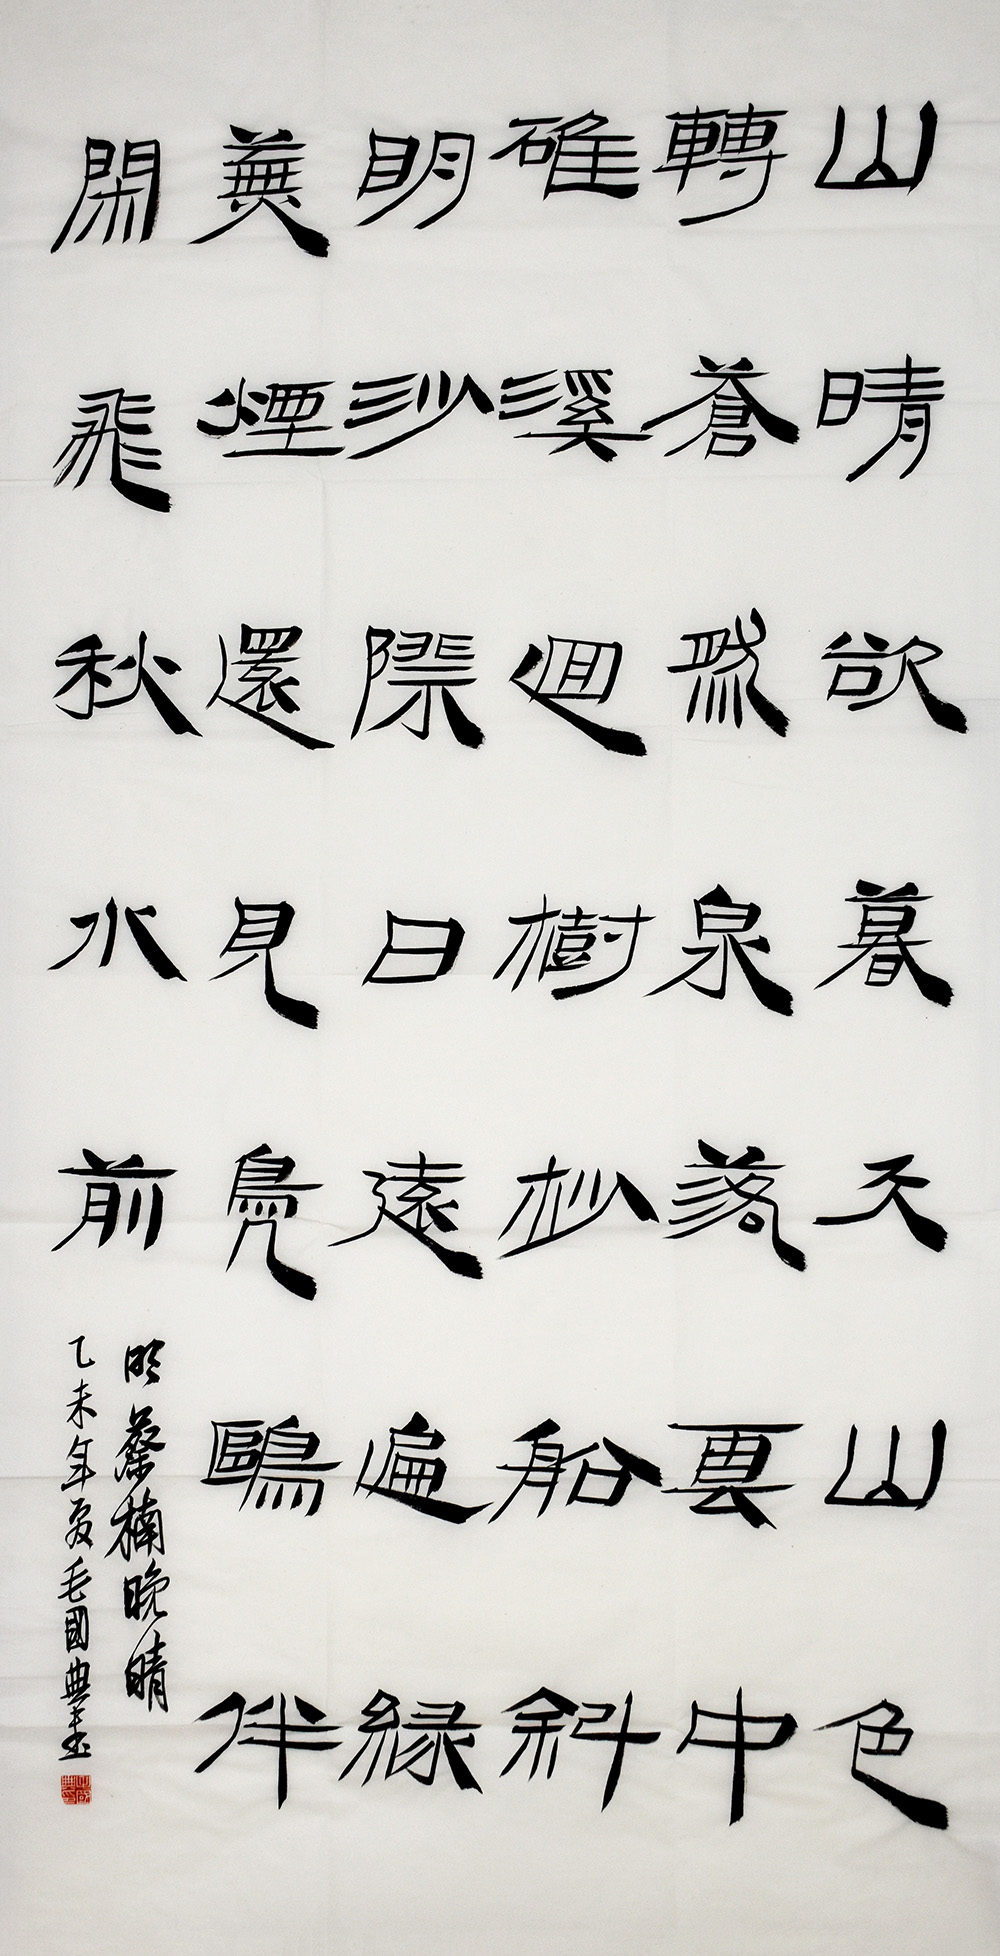 山晴欲暮天山色
轉蒼然泉落雲中
碓溪迴樹杪船斜
明沙際日遠遍緑
蕪煙還見鳧鷗伴
閑飛秋水前
明蔡楠晚晴
乙未年夏毛國典書